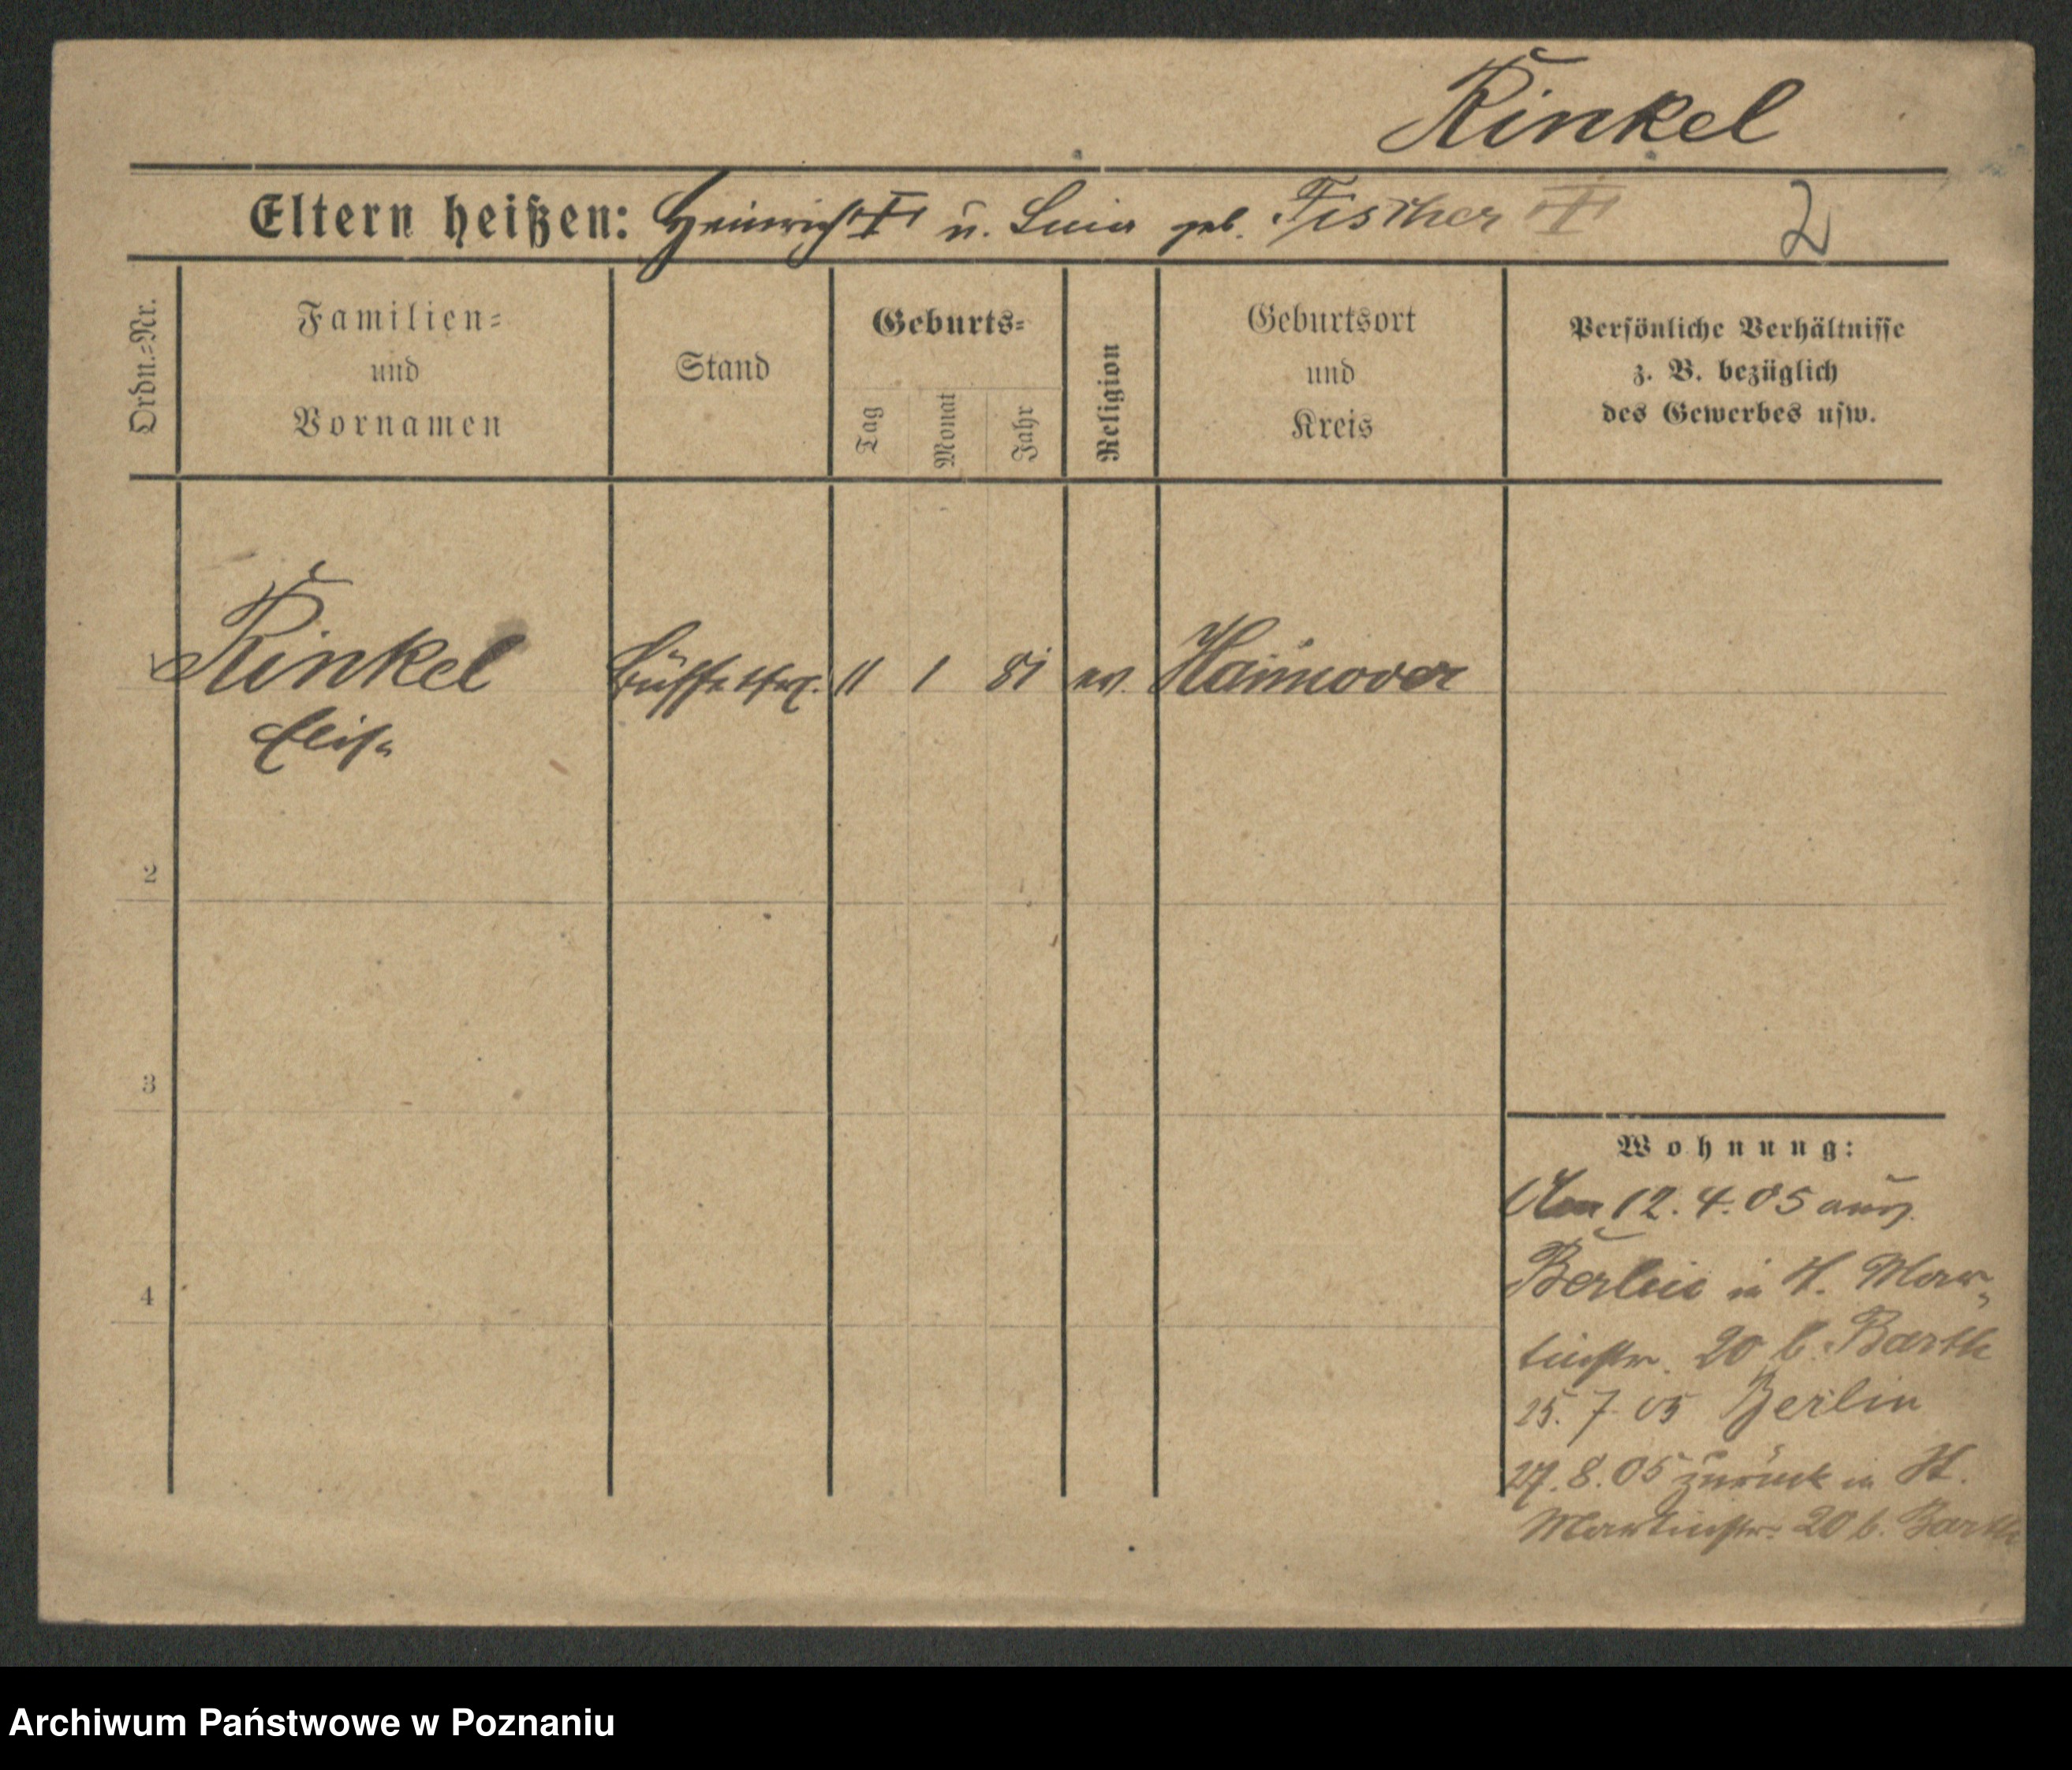 Kinkel
Eltern heißen: Heinrich † u. Luise geb. Fischer †
2
Ordn.=Nr.
Familien=
und
Vornamen
Stand
Geburts=
Tag
Monat
Jahr
Religion
Geburtsort
und
Kreis
Persönliche Verhältnisse
z. B. bezüglich
des Gewerbes usw.
Kinkel
Elise
11 1 81 ev. Hannover
2
3
4
Wohnung:
12.4.05 aus
Berlin in St. Mar-
tinstr. 20 b. Barth
25. 7. 05 Berlin
27.8.05 zurück in St.
Martinstr. 20 b. Barth
Archiwum Państwowe w Poznaniu